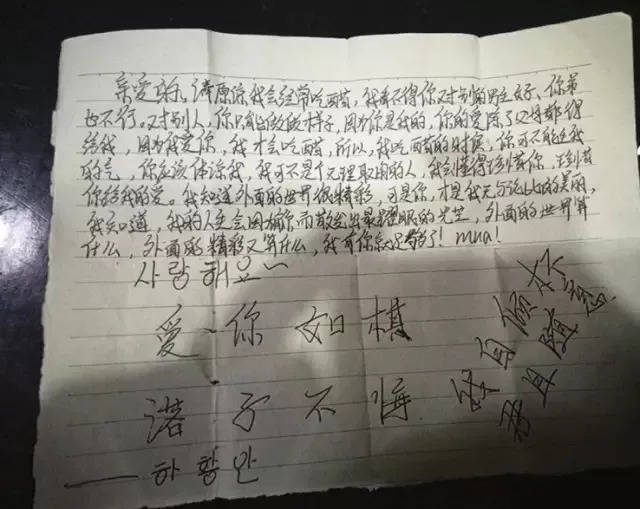 亲爱的，请原谅我会经常吃醋，我看不得你对别的男生好，你弟
也不行，对别人，你只能皮笑肉不笑，因为你是我的，你的爱除了父母都得
给我，因为我爱你，我才会吃醋，所以，我吃醋的时候，你可不能生我
的气，你应该体谅我，我可不是个无理取闹的人，我会懂得珍惜你，珍惜
你给我的爱。我知道外面的世界很精彩，可是你，才是我无与伦比的美丽，
我知道，我的人生会因你而散发出最耀眼的光芒，外面的世界算
什么，外面的精彩又算什么，我有你就足够了！mua！
사랑해요~
爱你如棋
落子不悔
——하황안